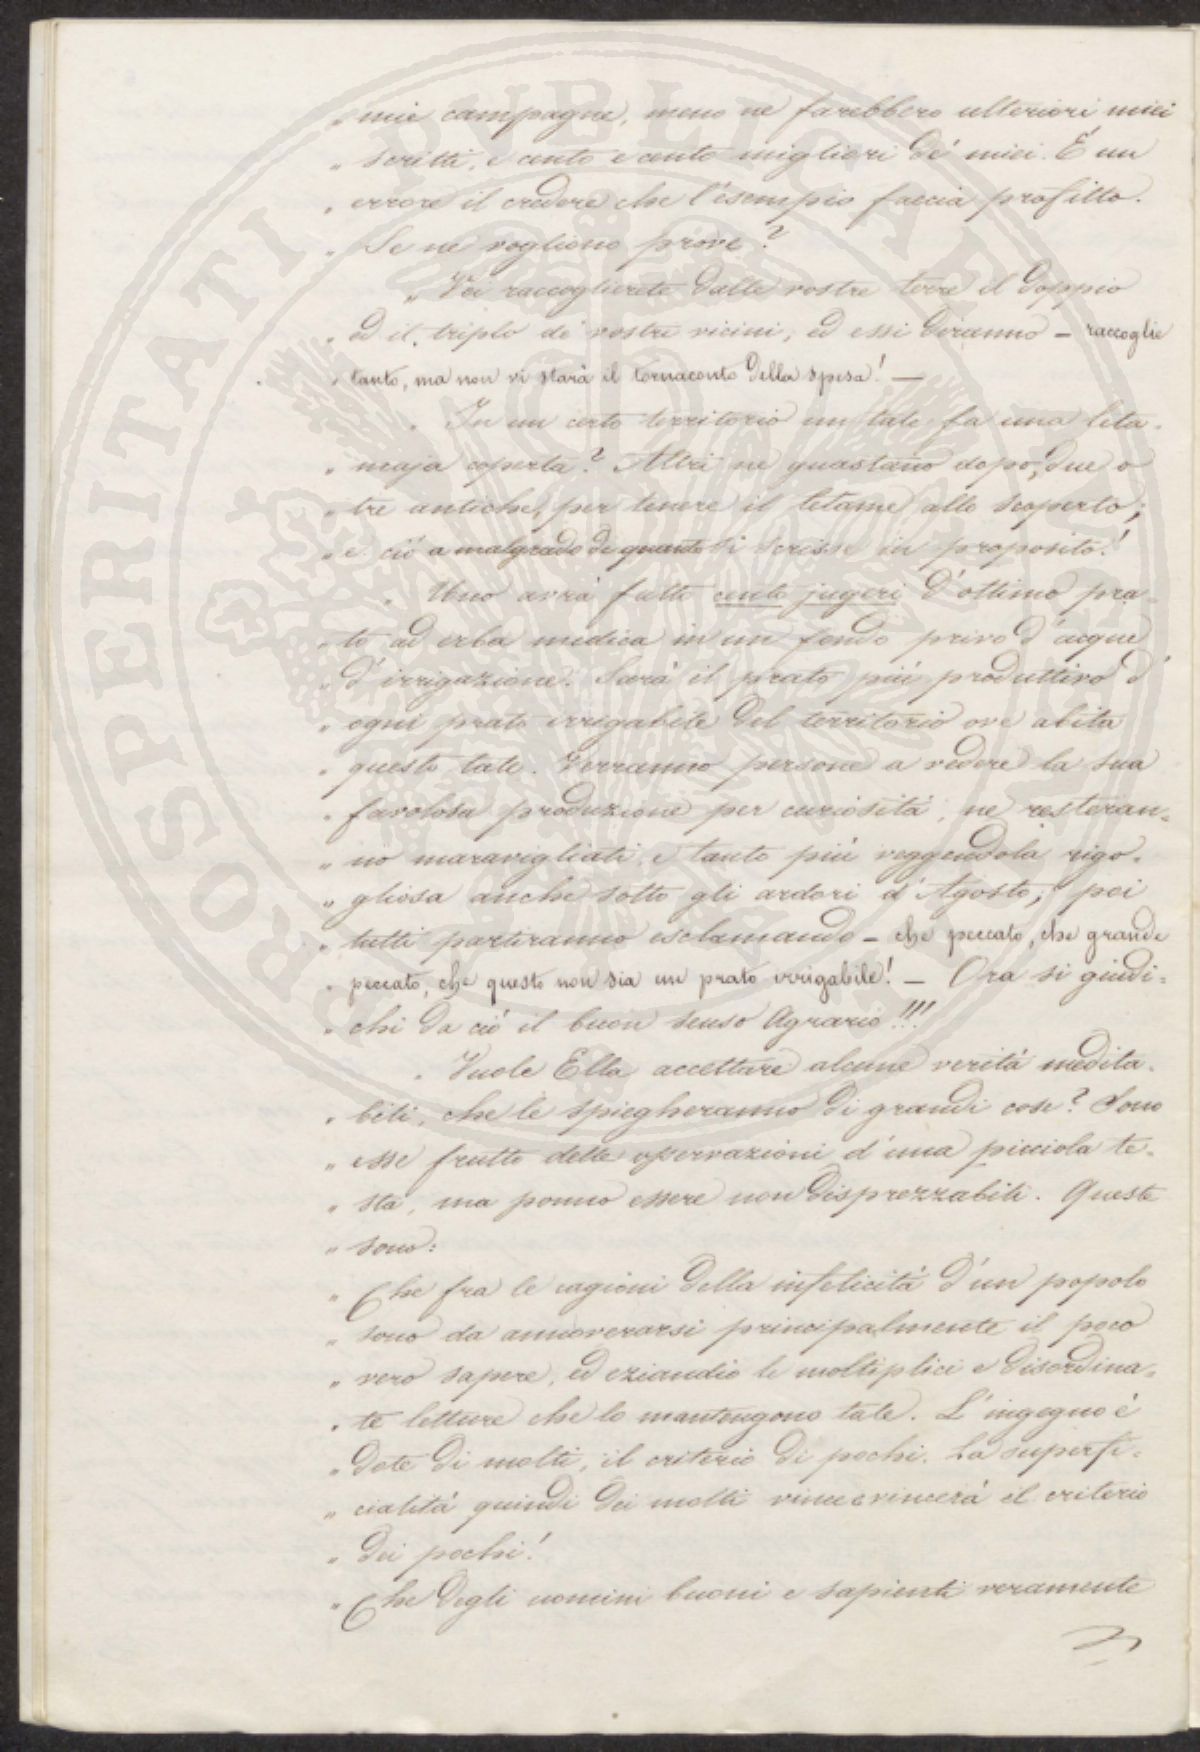 „ mie campagne, meno ne farebbero ulteriori miei
„ scritti, e cento e cento migliori de' miei. É un
„ errore il credere che l'esempio faccia profitto.
„ Se ne vogliono prove?
„ Voi raccoglierete dalle vostre terre il doppio
„ ed il triplo de' vostri vicini, ed essi diranno – raccoglie
„ tanto, ma non vi stará il tornaconto della spesa! —
„ In un certo territorio un tale fa una leta-
„ maja coperta? Altri ne guastano dopo, due o
„ tre antiche, per tenere il letame allo scoperto;
„ e ció a malgrado di quanto si scrisse in proposito!
„ Uno avrá fatto cento jugeri d'ottimo pra-
„ to ad erba medica in un fondo privo d'acque
„ d'irrigazione. Sará il prato piú produttivo d'
„ ogni prato irrigabile del territorio ove abita
„ questo tale. Verranno persone a vedere la sua
„ favolosa produzione per curiositá, ne resteran-
„ no maravigliati, e tanto piú veggendola rigo-
„ gliosa anche sotto gli ardori d'Agosto; poi
„ tutti partiranno esclamando – che peccato, che grande
„ peccato, che questo non sia un prato irrigabile! – Ora si giudi-
„ chi da ció il buon senso Agrario!!!
„ Vuole Ella accettare alcune veritá medita-
„ bili, che le spiegheranno di grandi cose? Sono
„ esse frutto delle osservazioni d'una picciola te-
„ sta, ma ponno essere non disprezzabili. Queste
„ sono:
„ Che fra le cagioni della infelicitá d'un popolo
„ sono da annoverarsi principalmente il poco
„ vero sapere, ed eziandio le moltiplici e disordina-
„ te letture che lo mantengono tale. L'ingegno é
„ dote di molti, il criterio di pochi. La superfi-
„ cialitá quindi dei molti vince e vincerá il criterio
„ dei pochi!
„ Che degli uomini buoni e sapienti veramente
PROSPERITATI PUBLICAE